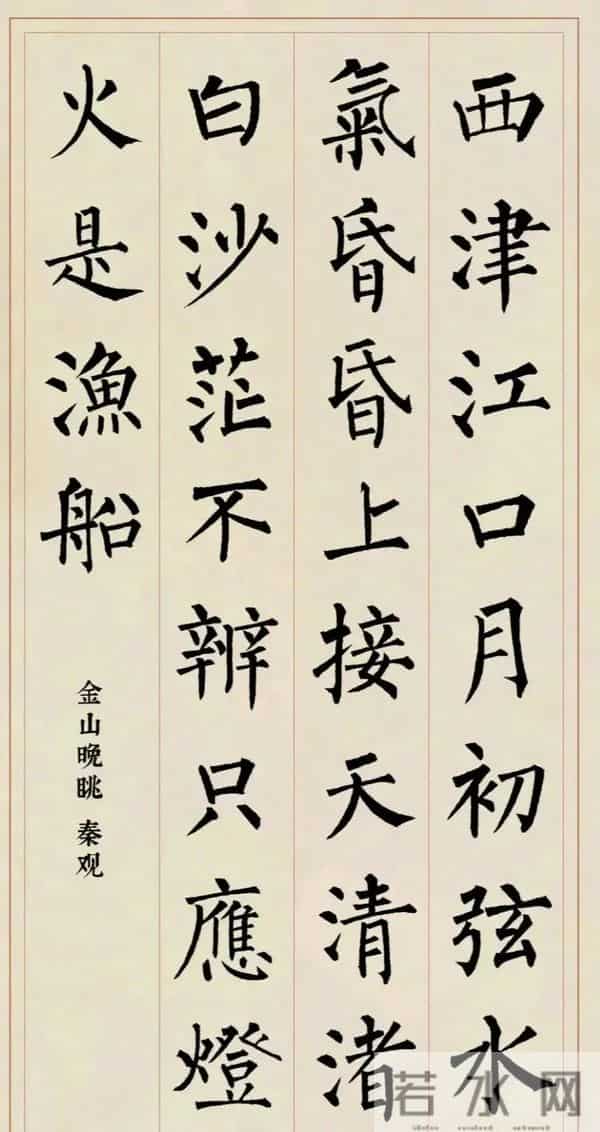 西津江口月初弦水
氣昏昏上接天清渚
白沙茫不辨只應燈
火是漁船
金山晚眺 秦观
若水网